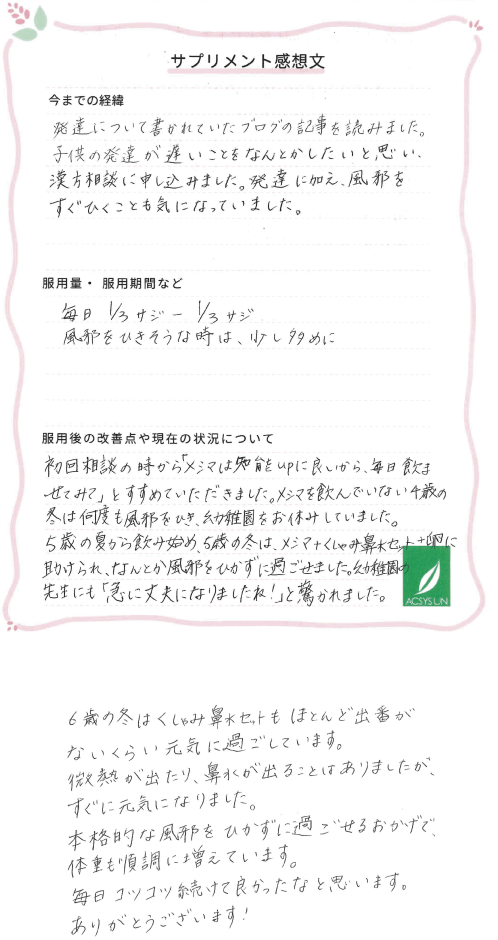 サプリメント感想文
今までの経緯
発達について書かれていたブログの記事を読みました。
子供の発達が遅いことをなんとかしたいと思い、
漢方相談に申し込みました。発達に加え、風邪を
すぐひくことも気になっていました。
服用量・ 服用期間など
毎日 1/3サジー 1/3サジ
風邪をひきそうな時は、少し多めに
服用後の改善点や現在の状況について
初回相談の時から「メシマは知能upに良いから、毎日飲ま
せてみて」とすすめていただきました。メシマを飲んでいない4歳の
冬は何度も風邪をひき、幼稚園をお休みしていました。
5歳の夏から飲み始め、5歳の冬は、メシマ+くしゃみ鼻水セット+卵に
助けられ、なんとか風邪をひかずに過ごせました。幼稚園の
先生にも「急に丈夫になりましたね!」と驚かれました。
ACSYS UN
6歳の冬はくしゃみ鼻水セットもほとんど出番が
ないくらい元気に過ごしています。
微熱が出たり、鼻水が出ることはありましたが、
すぐに元気になりました。
本格的な風邪をひかずに過ごせるおかげで、
体重も順調に増えています。
毎日コツコツ続けて良かったなと思います。
ありがとうございます!